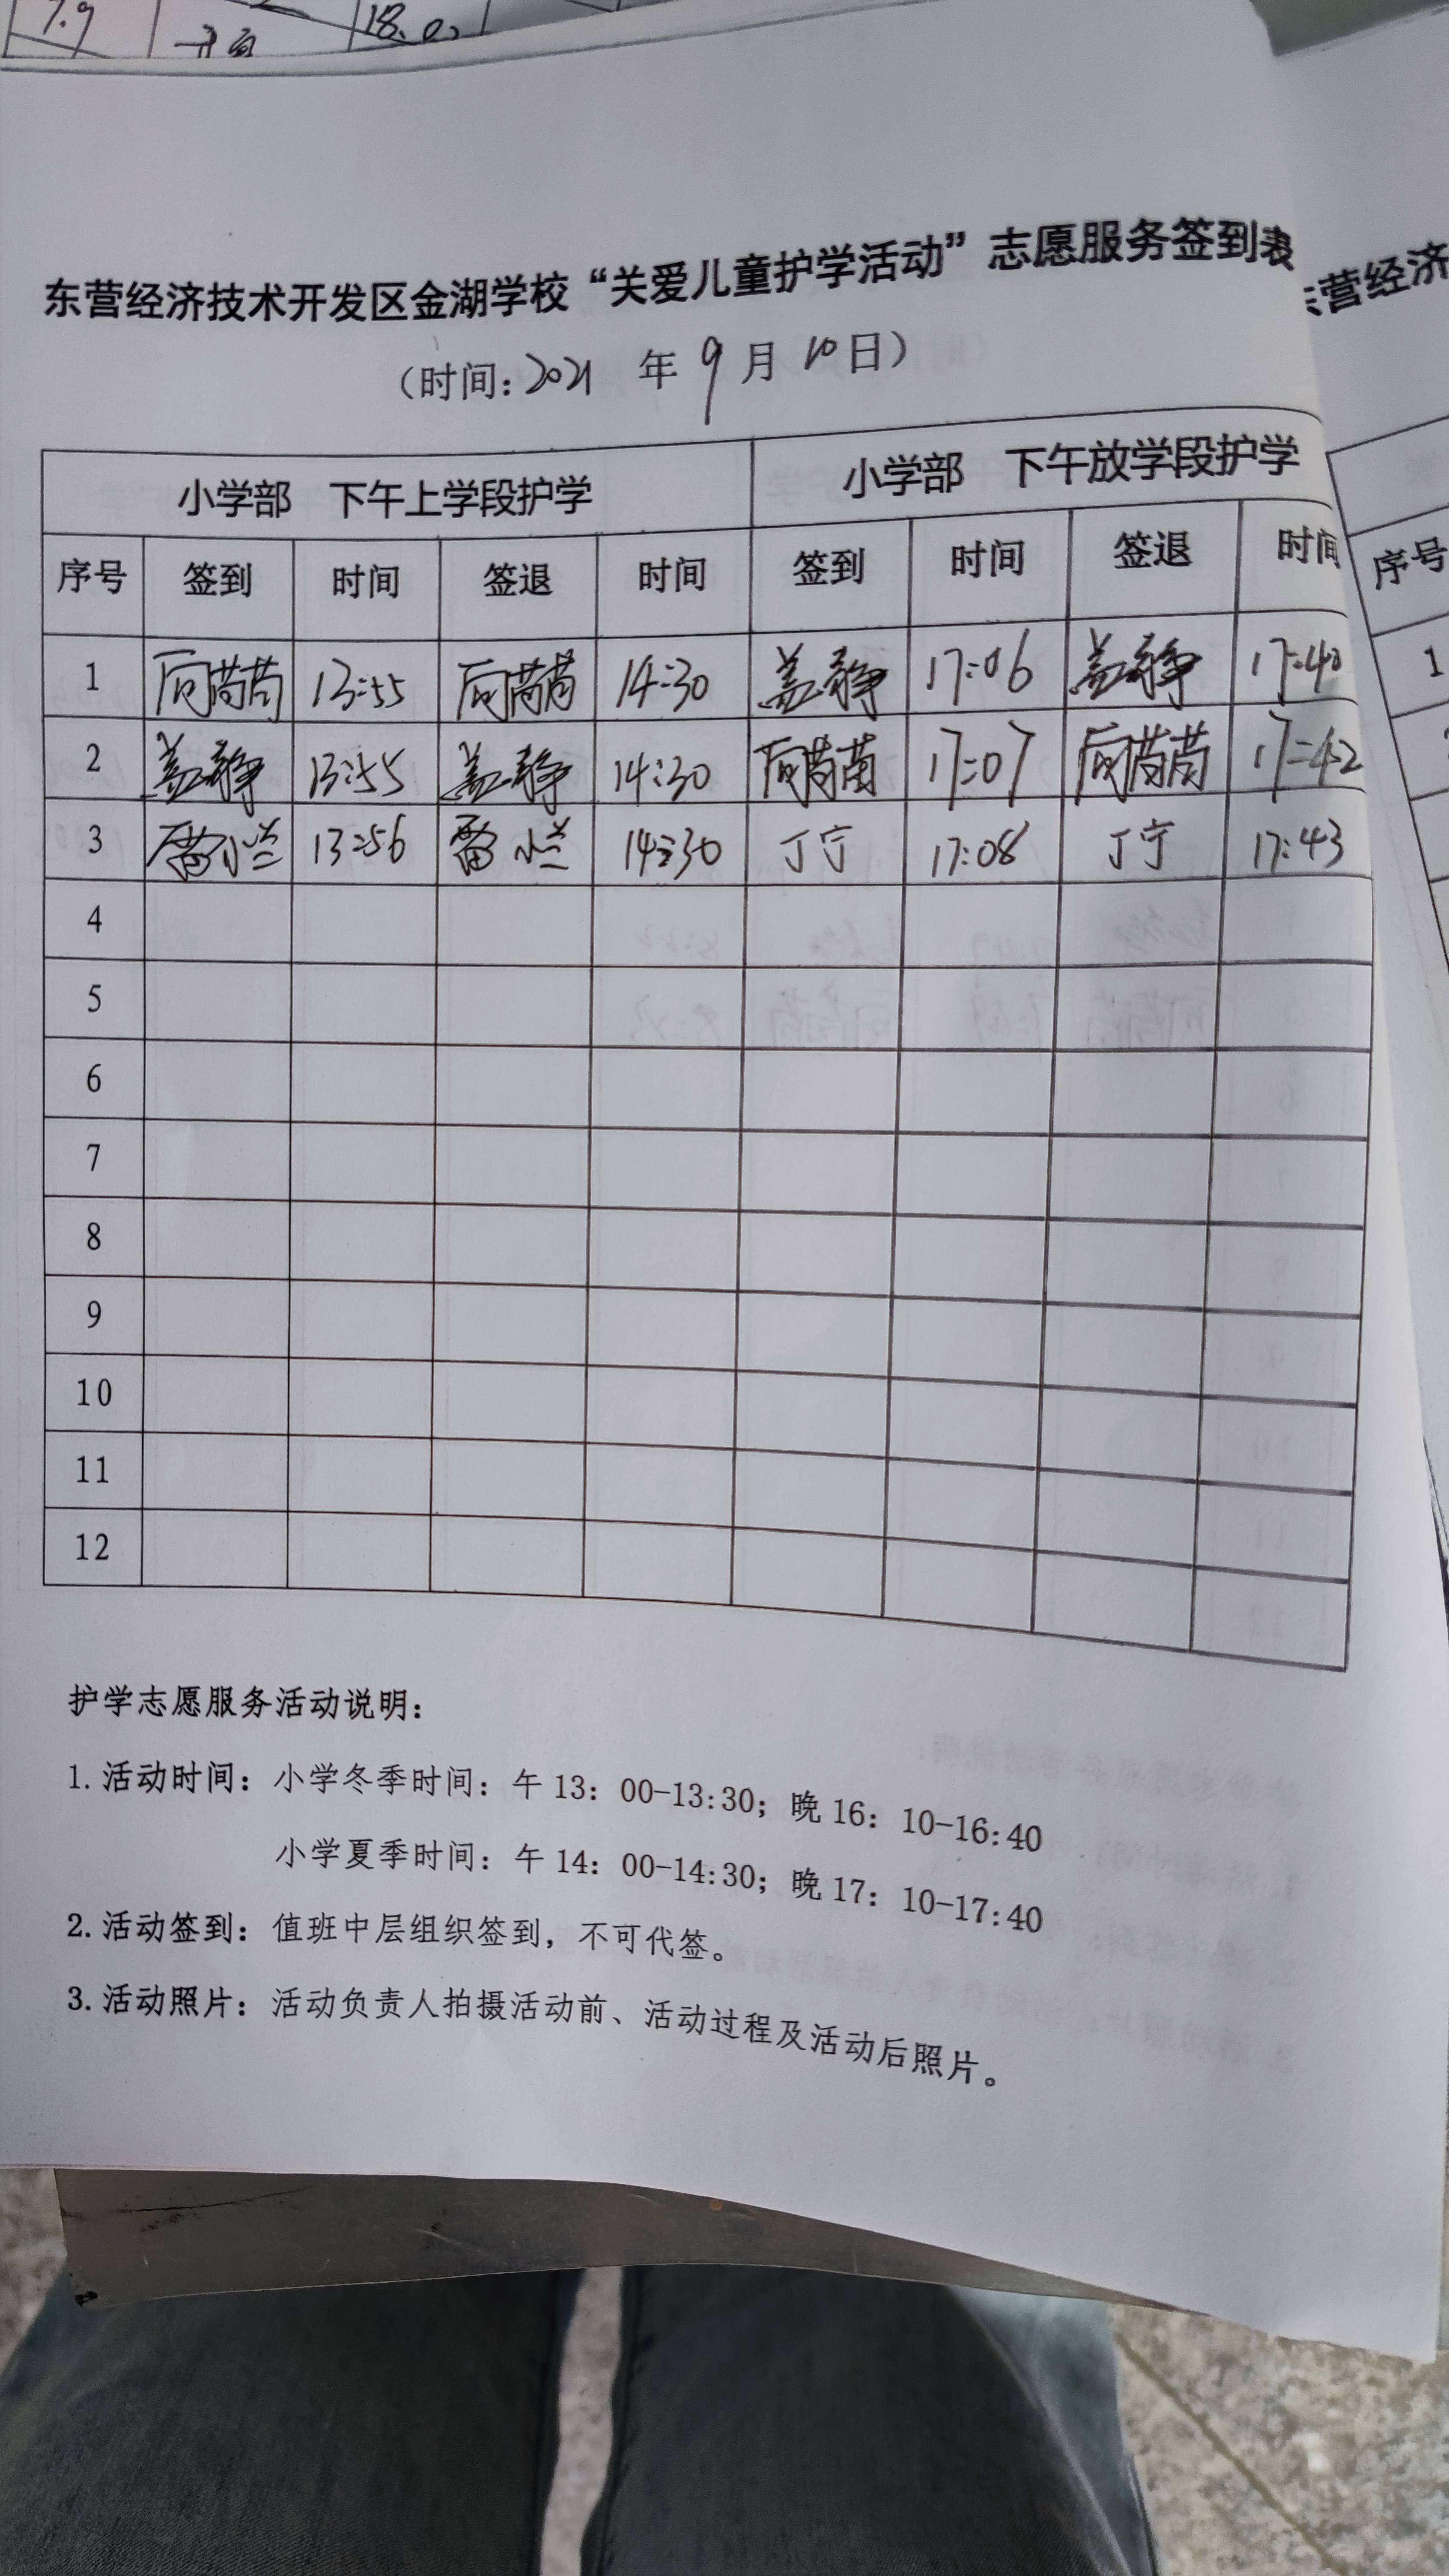 7.9 18.0
东营经济技术开发区金湖学校“关爱儿童护学活动”志愿服务签到表
营经济
（时间：2021 年 9 月 10 日）
小学部 下午上学段护学 小学部 下午放学段护学
序号 签到 时间 签退 时间 签到 时间 签退 时间
序号
1 13:55 14:30 盖静 17:06 盖静 17:40
1
2 盖静 13:55 盖静 14:30 17:07 17:42
3 13:56 14:30 丁宁 17:08 丁宁 17:43
4
5
6
7
8
9
10
11
12
护学志愿服务活动说明：
1.活动时间：小学冬季时间：午 13：00-13:30；晚 16：10-16:40
小学夏季时间：午 14：00-14:30；晚 17：10-17:40
2.活动签到：值班中层组织签到，不可代签。
3.活动照片：活动负责人拍摄活动前、活动过程及活动后照片。